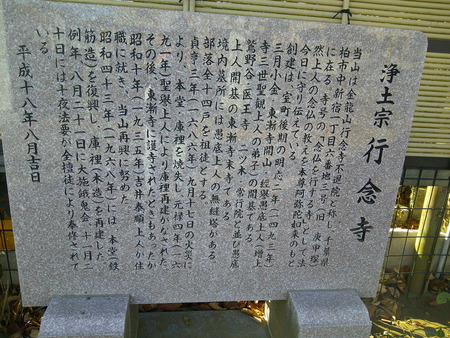 浄土宗 行念寺
当山は金龍山行念寺不思院と称し、千葉県
柏市中新宿一丁目六番地二号(旧 庚申塚)
に在る。寺号の「念仏を行ずる寺」として法
然上人の念仏の教えを本尊阿弥陀如来のもと
今日に守り伝えている。
創建は、室町後期の明応二年(一四九三年)
三月小金 東漸寺開山 経誉愚底上人(増上
寺三世聖観上人の弟子)の開基である。
鷲野谷 医王寺 二ツ木 常行院と並び愚底
上人開基の東漸寺末寺である。
境内墓所には愚底上人の無縫塔がある。
部落全十四戸を祖徒とする。
貞享三年(一六八六年)九月十七日の火災に
より、本堂・庫裡を焼失し元禄四年(一六
九一年)聖誉上人により庫裡再建がなされた。
その後、東漸寺に護寺されたときもあったが
昭和十年(一九三五年)吉井義順上人が住
職に就き、当山再興に努めた。
昭和四十三年(一九六八年)には、本堂(鉄
筋造)を復興し、庫裡(木造)を再建した。
例年、八月二十一日に大施餓鬼会、十一月二
十日には十夜法要が全檀徒により奉修されて
いる。
平成十八年八月吉日